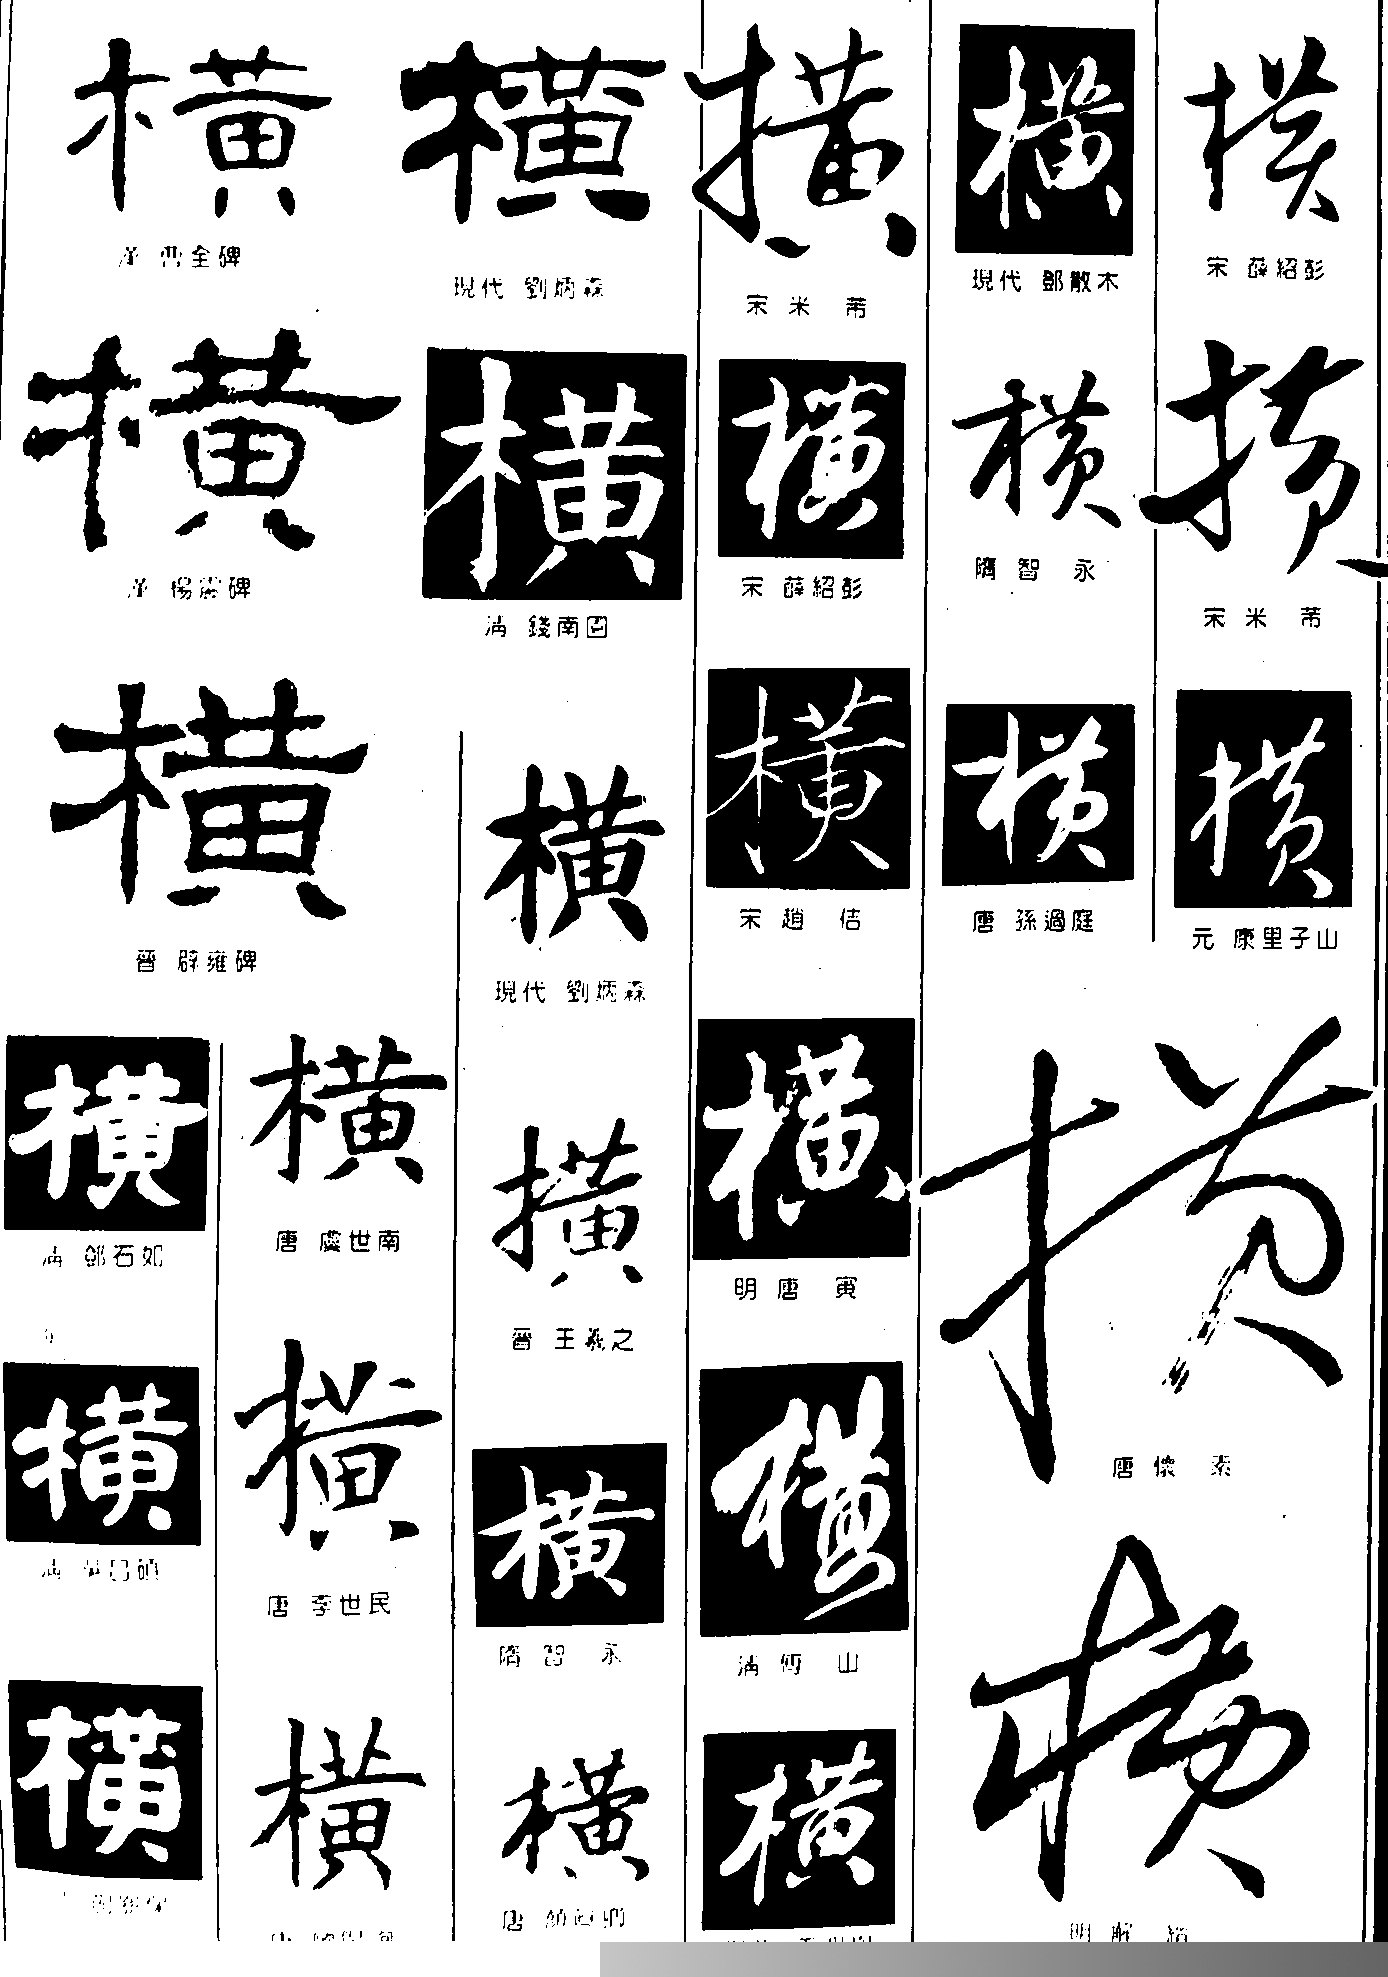 橫
漢 曹全碑
橫
漢 楊震碑
橫
晉 辟雍碑
橫
清 鄧石如
橫
清
橫
橫
現代 劉炳森
橫
清 錢南園
橫
現代 劉炳森
橫
唐 虞世南
橫
唐 李世民
橫
唐
橫
晉 王羲之
橫
隋 智永
橫
唐 顏真卿
橫
宋 米芾
橫
宋 薛紹彭
橫
宋 趙佶
橫
明 唐寅
橫
清 傅山
橫
橫
現代 鄧散木
橫
隋 智永
橫
唐 孫過庭
橫
宋 薛紹彭
橫
宋 米芾
橫
元 康里子山
橫
唐 懷素
橫
明 解縉